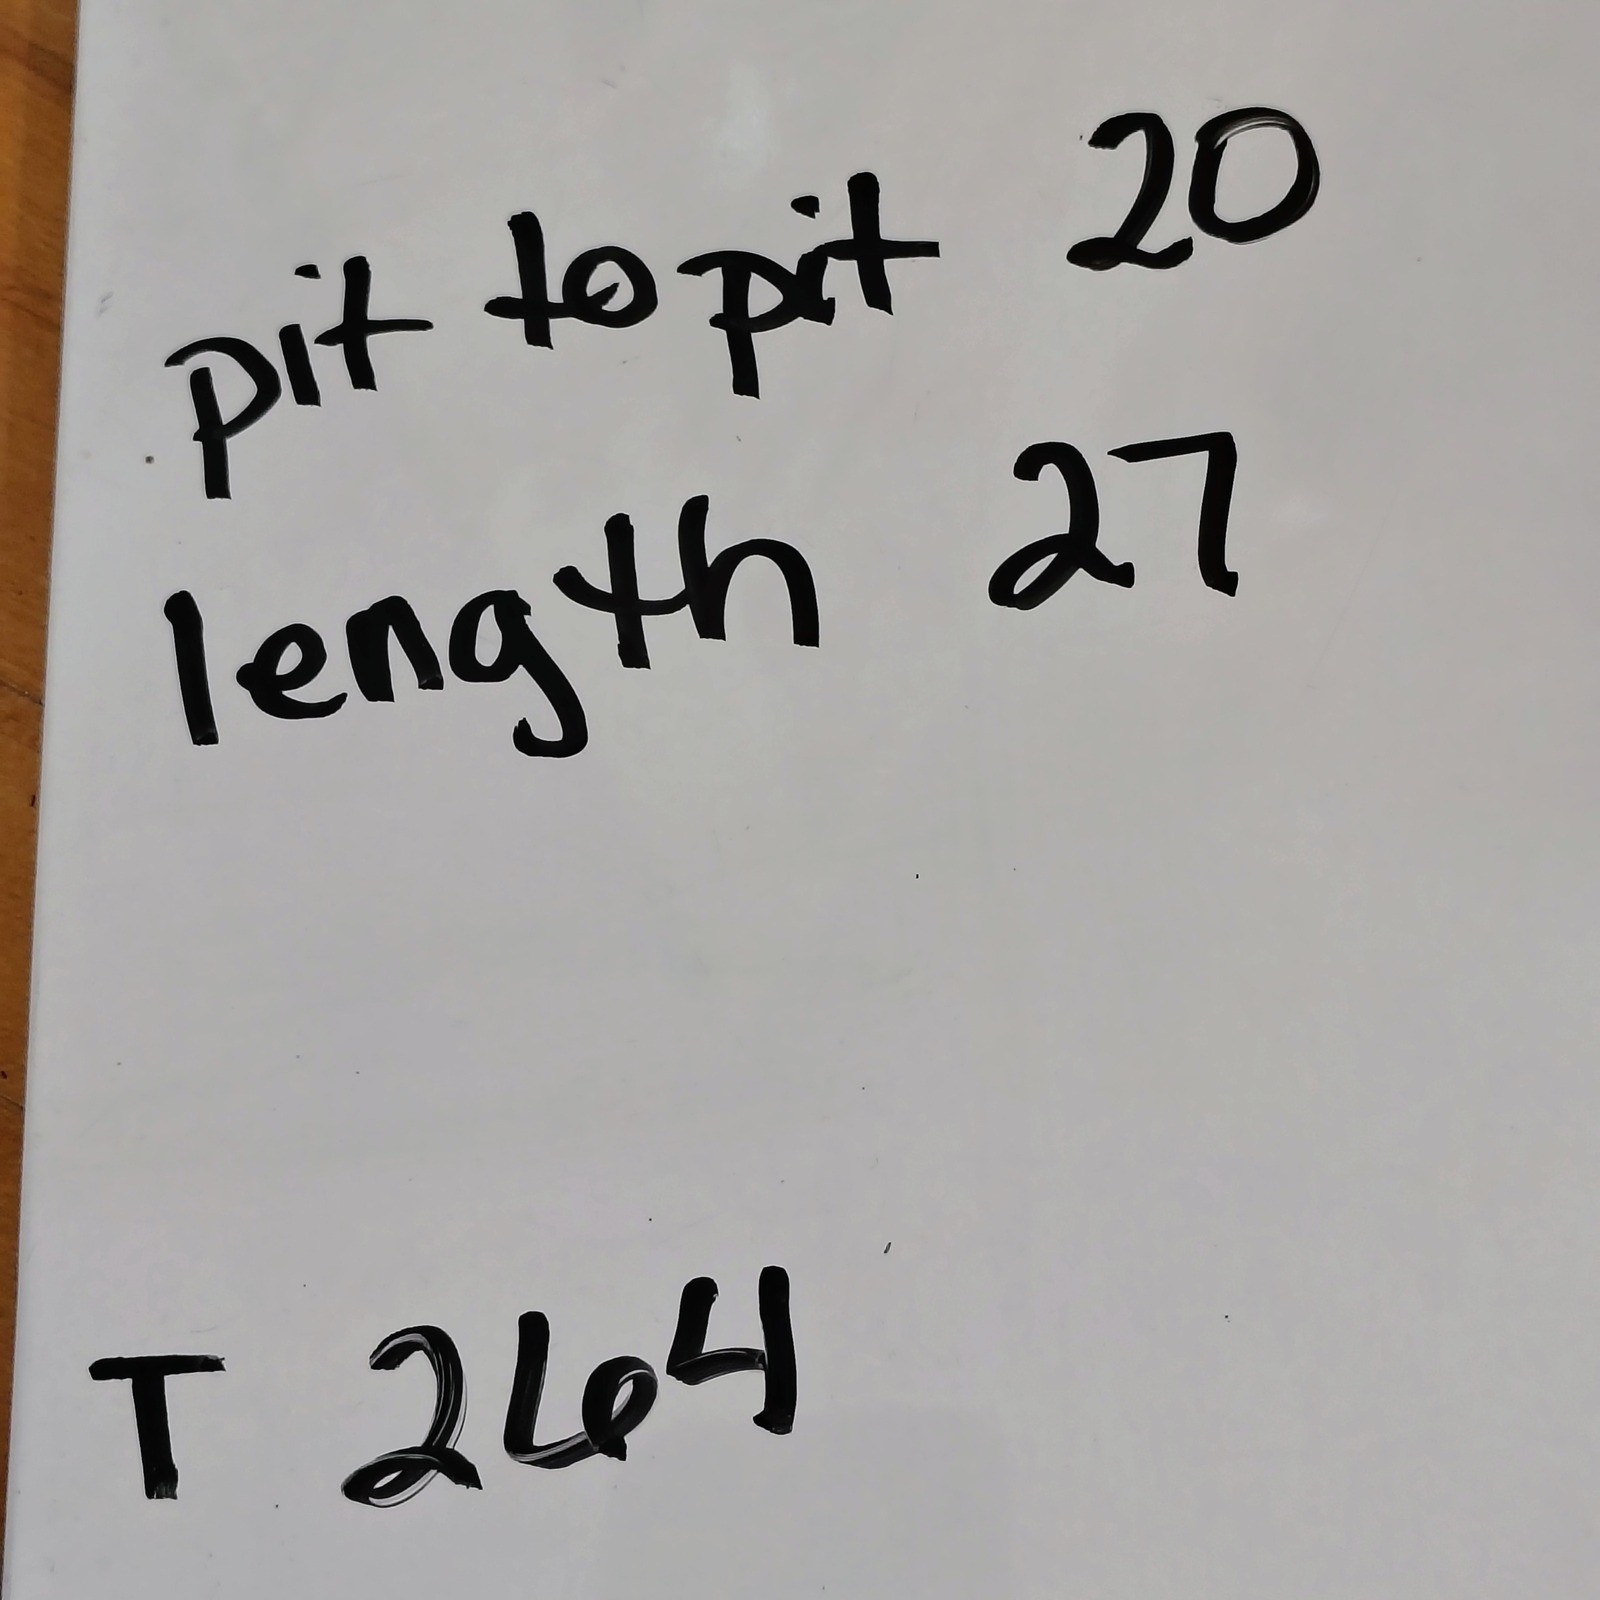 pit to pit 20
length 27
T 264